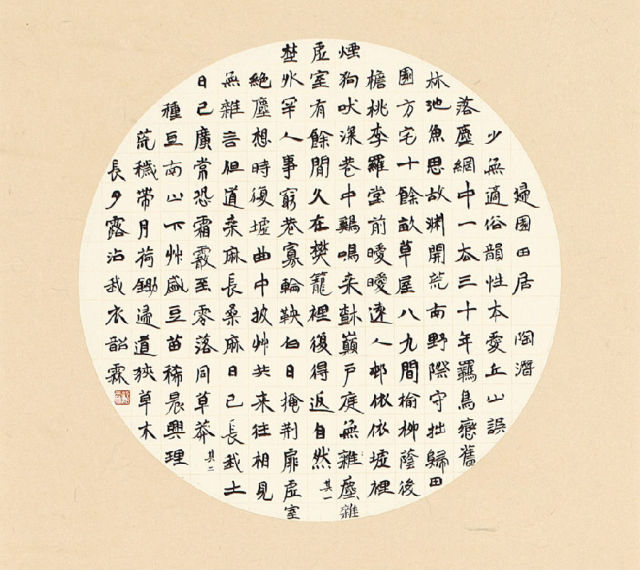 歸園田居 陶潛
少無適俗韻性本愛丘山誤
落塵網中一去三十年羈鳥戀舊
林池魚思故淵開荒南野際守拙歸田
園方宅十餘畝草屋八九間榆柳蔭後
檐桃李羅堂前曖曖遠人邨依依墟裡
煙狗吠深巷中鷄鳴桒樹巔戶庭無雜塵雜
虛室有餘間久在樊籠裡復得返自然 其一
埜外罕人事窮巷寡輪鞅白日掩荊扉虛室
絕塵想時復墟曲中披艸共來往相見
無雜言但道桒麻長桑麻日已長我土
日已廣常恐霜霰至零落同草莽 其二
種豆南山下艸盛豆苗稀晨興理
荒穢帶月荷鋤歸道狹草木
長夕露沾我衣韶霖